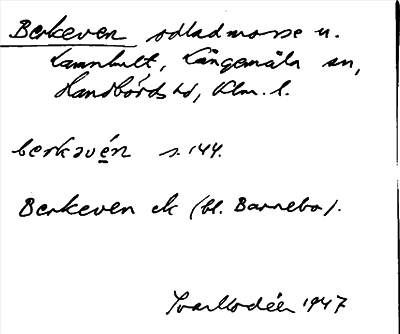 Berkeven odlad mosse u.
Lamnhult, Långemåla sn,
Handbörds hd, Klm. l.
berkəvén s. 144.
Berkeven ek (bl. Barnebo).
Ivar Modéer 1947